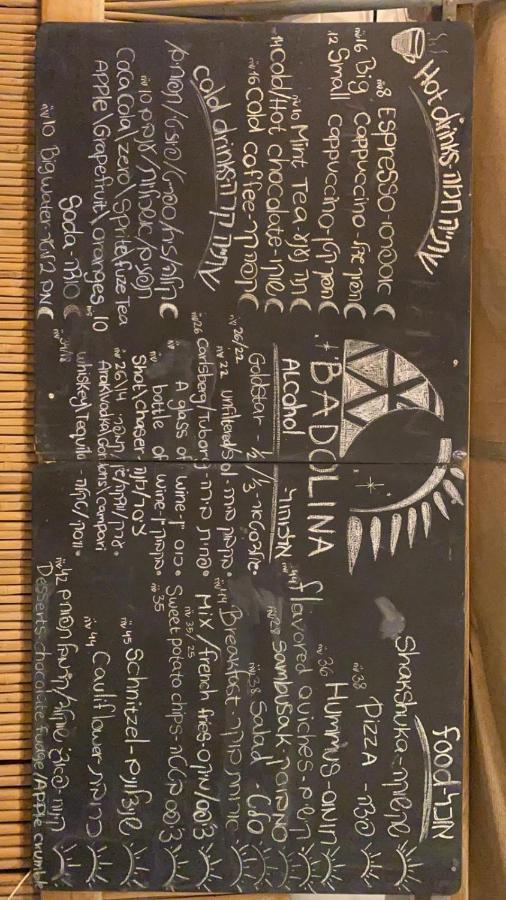 Hot drinks-שתייה חמה
₪8 Espresso-אספרסו
₪16 Big Cappuccino-הפוך גדול
12 Small cappuccino-הפוך קטן
₪10 Mint Tea-תה נענע
14 Cold/Hot chocolate-שוקו
₪16 Cold coffee-קפה קר
cold drinks-שתייה קרה
Coca Cola\Zero\Sprite\fuze Tea
₪10
Apple\Grapefruit\oranges 10
Soda-סודה
₪10 Big water-מים גדול
BADOLINA
Alcohol אלכוהול
₪26/22 Goldstar-½/⅓-גולדסטאר
₪22 unfiltered
₪26 Carlsberg/Tuborg
A glass of wine-כוס יין
bottle of wine-בקבוק יין
Shot\chaser
₪26\14
Arak\vodka\Gordon's\campari
Whiskey\Tequila-ויסקי\טקילה
food-אוכל
Shakshuka-שקשוקה
₪38 Pizza-פיצה
₪36 Hummus-חומוס
₪44 flavored Quiches-קישים
₪28 Sambusak-סמבוסק
₪38 Salad-סלט
Breakfast-ארוחת בוקר
Mix/french fries
₪35/25
Sweet potato chips-צ'יפס בטטה
₪35
₪45 Schnitzel-שניצלונים
₪44 Cauliflower-כרובית
₪42
Desserts-chocolate fudge/Apple crumble